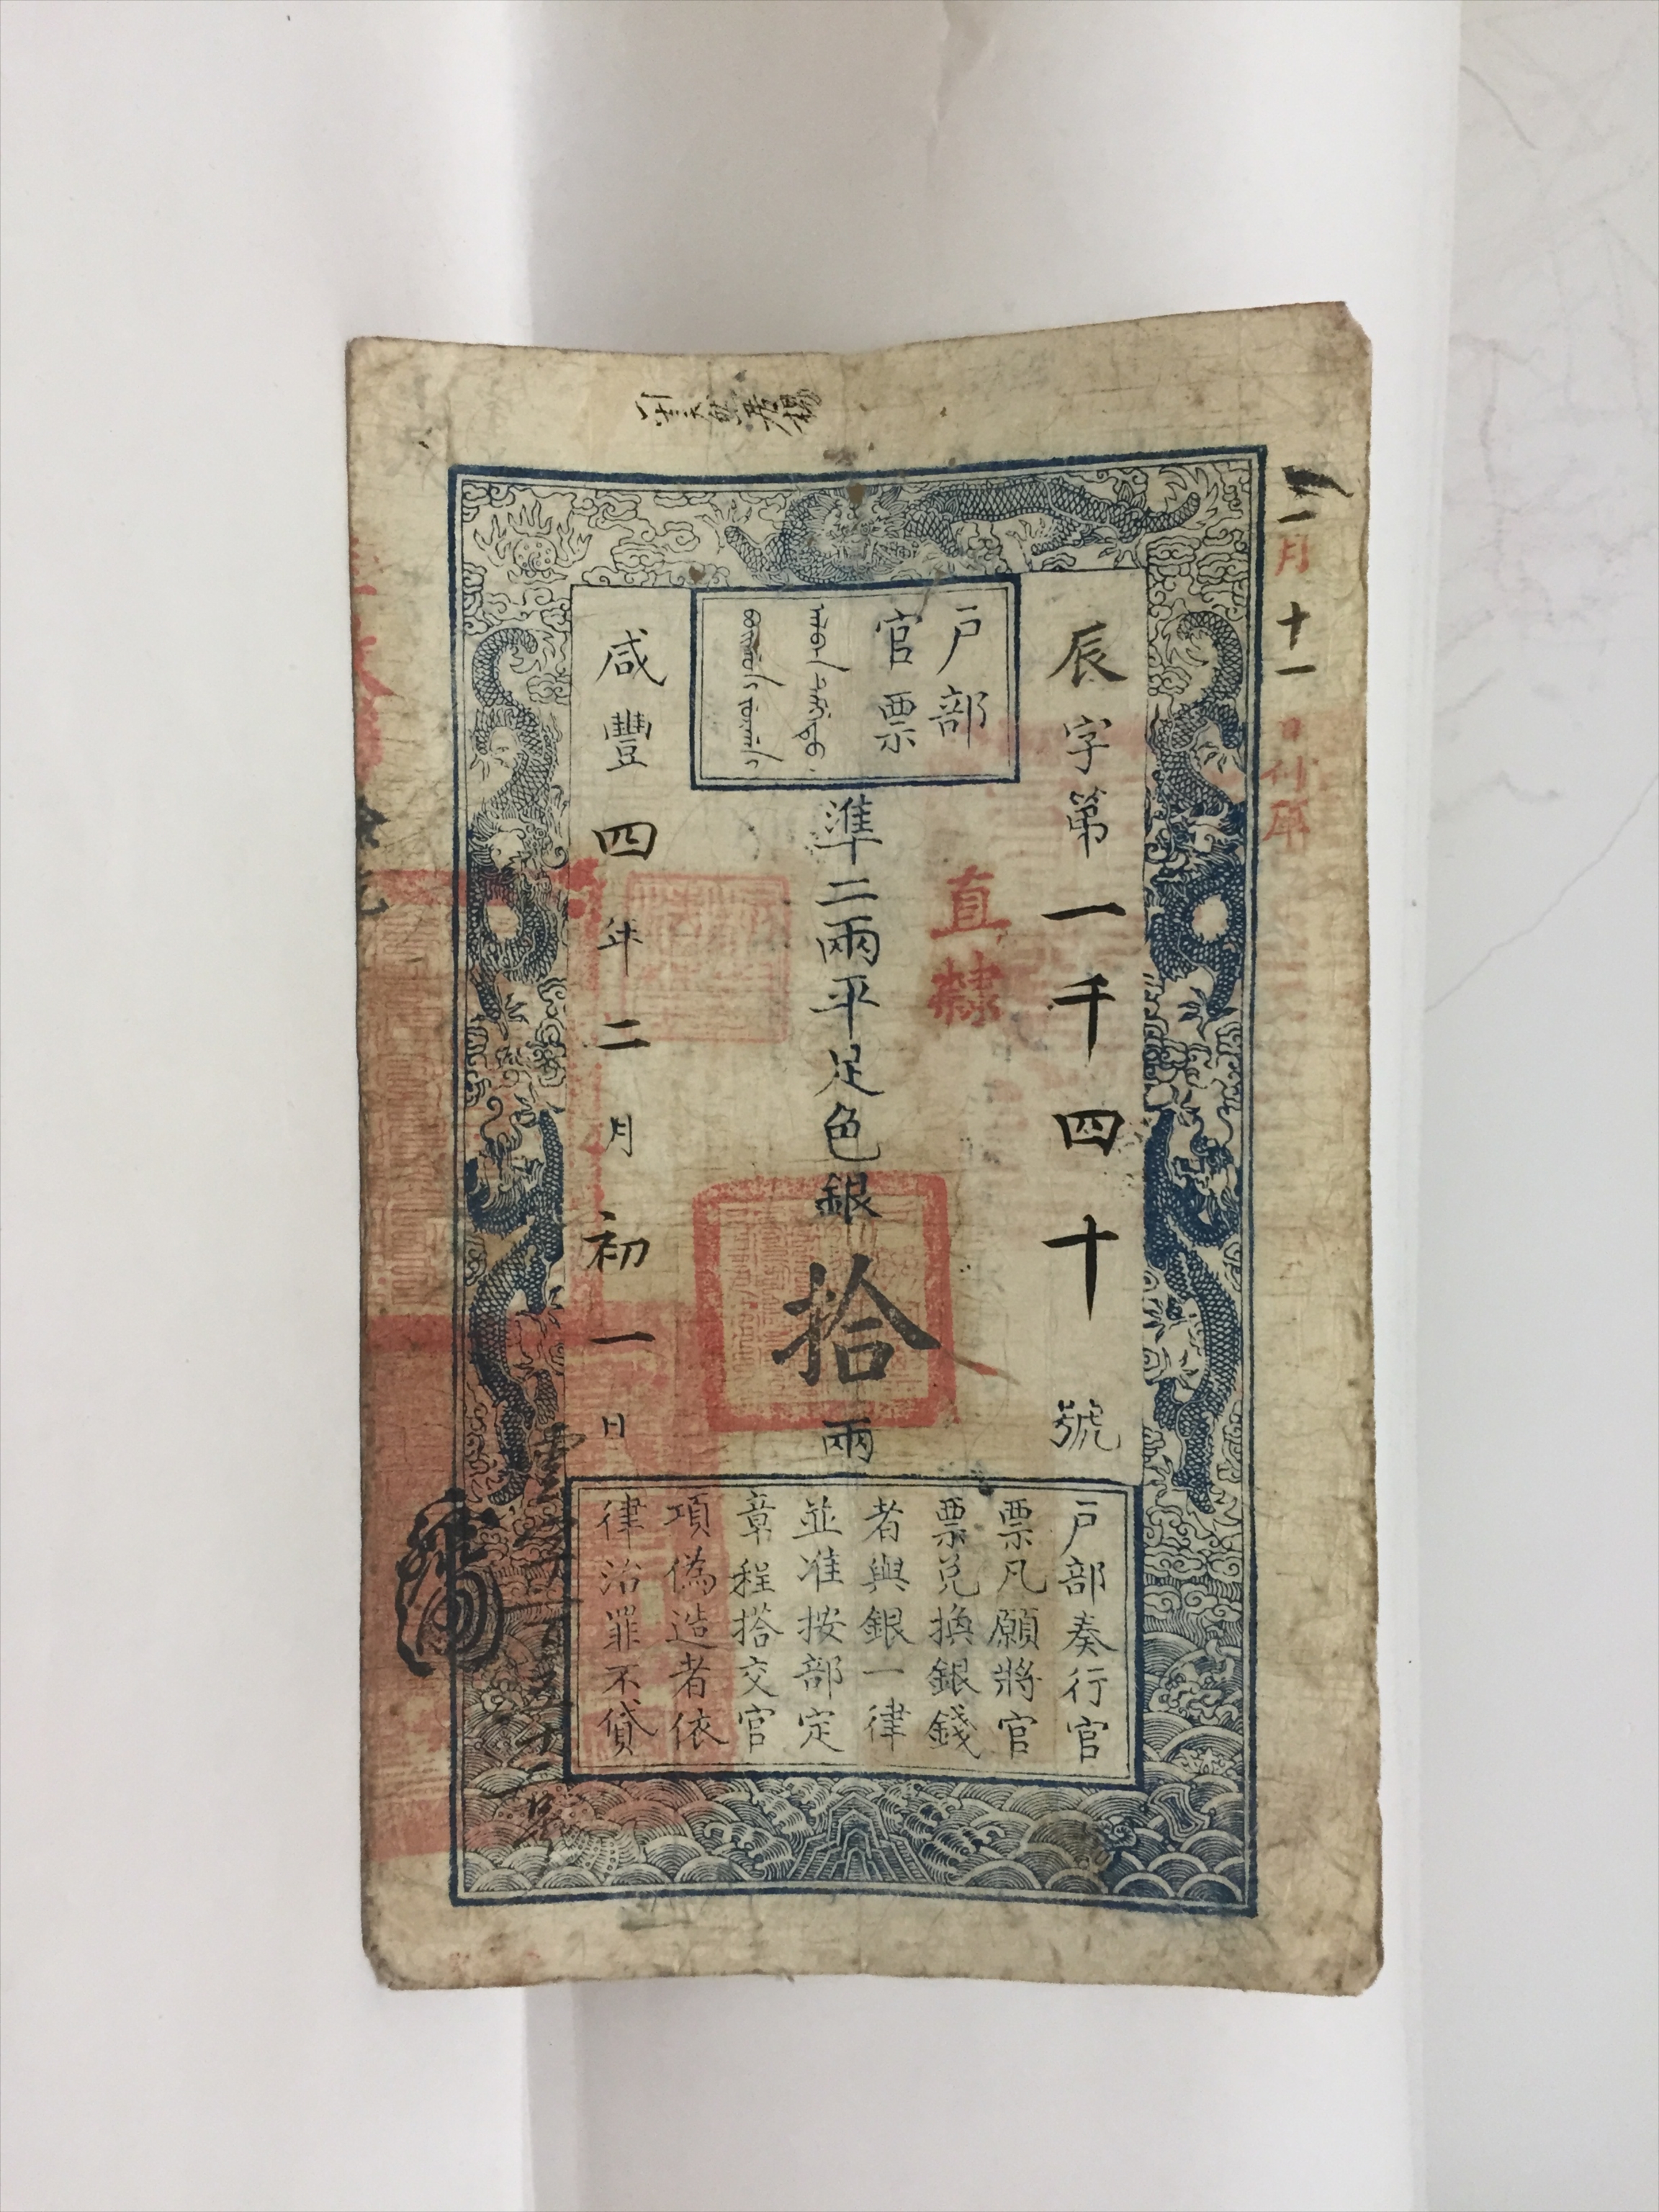 二月十一日付庫
辰字第一千四十號
直隸
戶部
官票
準二兩平足色銀拾兩
咸豐四年二月初一日
戶部奏行官
票凡願將官
票兌換銀錢
者與銀一律
並准按部定
章程搭交官
項偽造者依
律治罪不貸